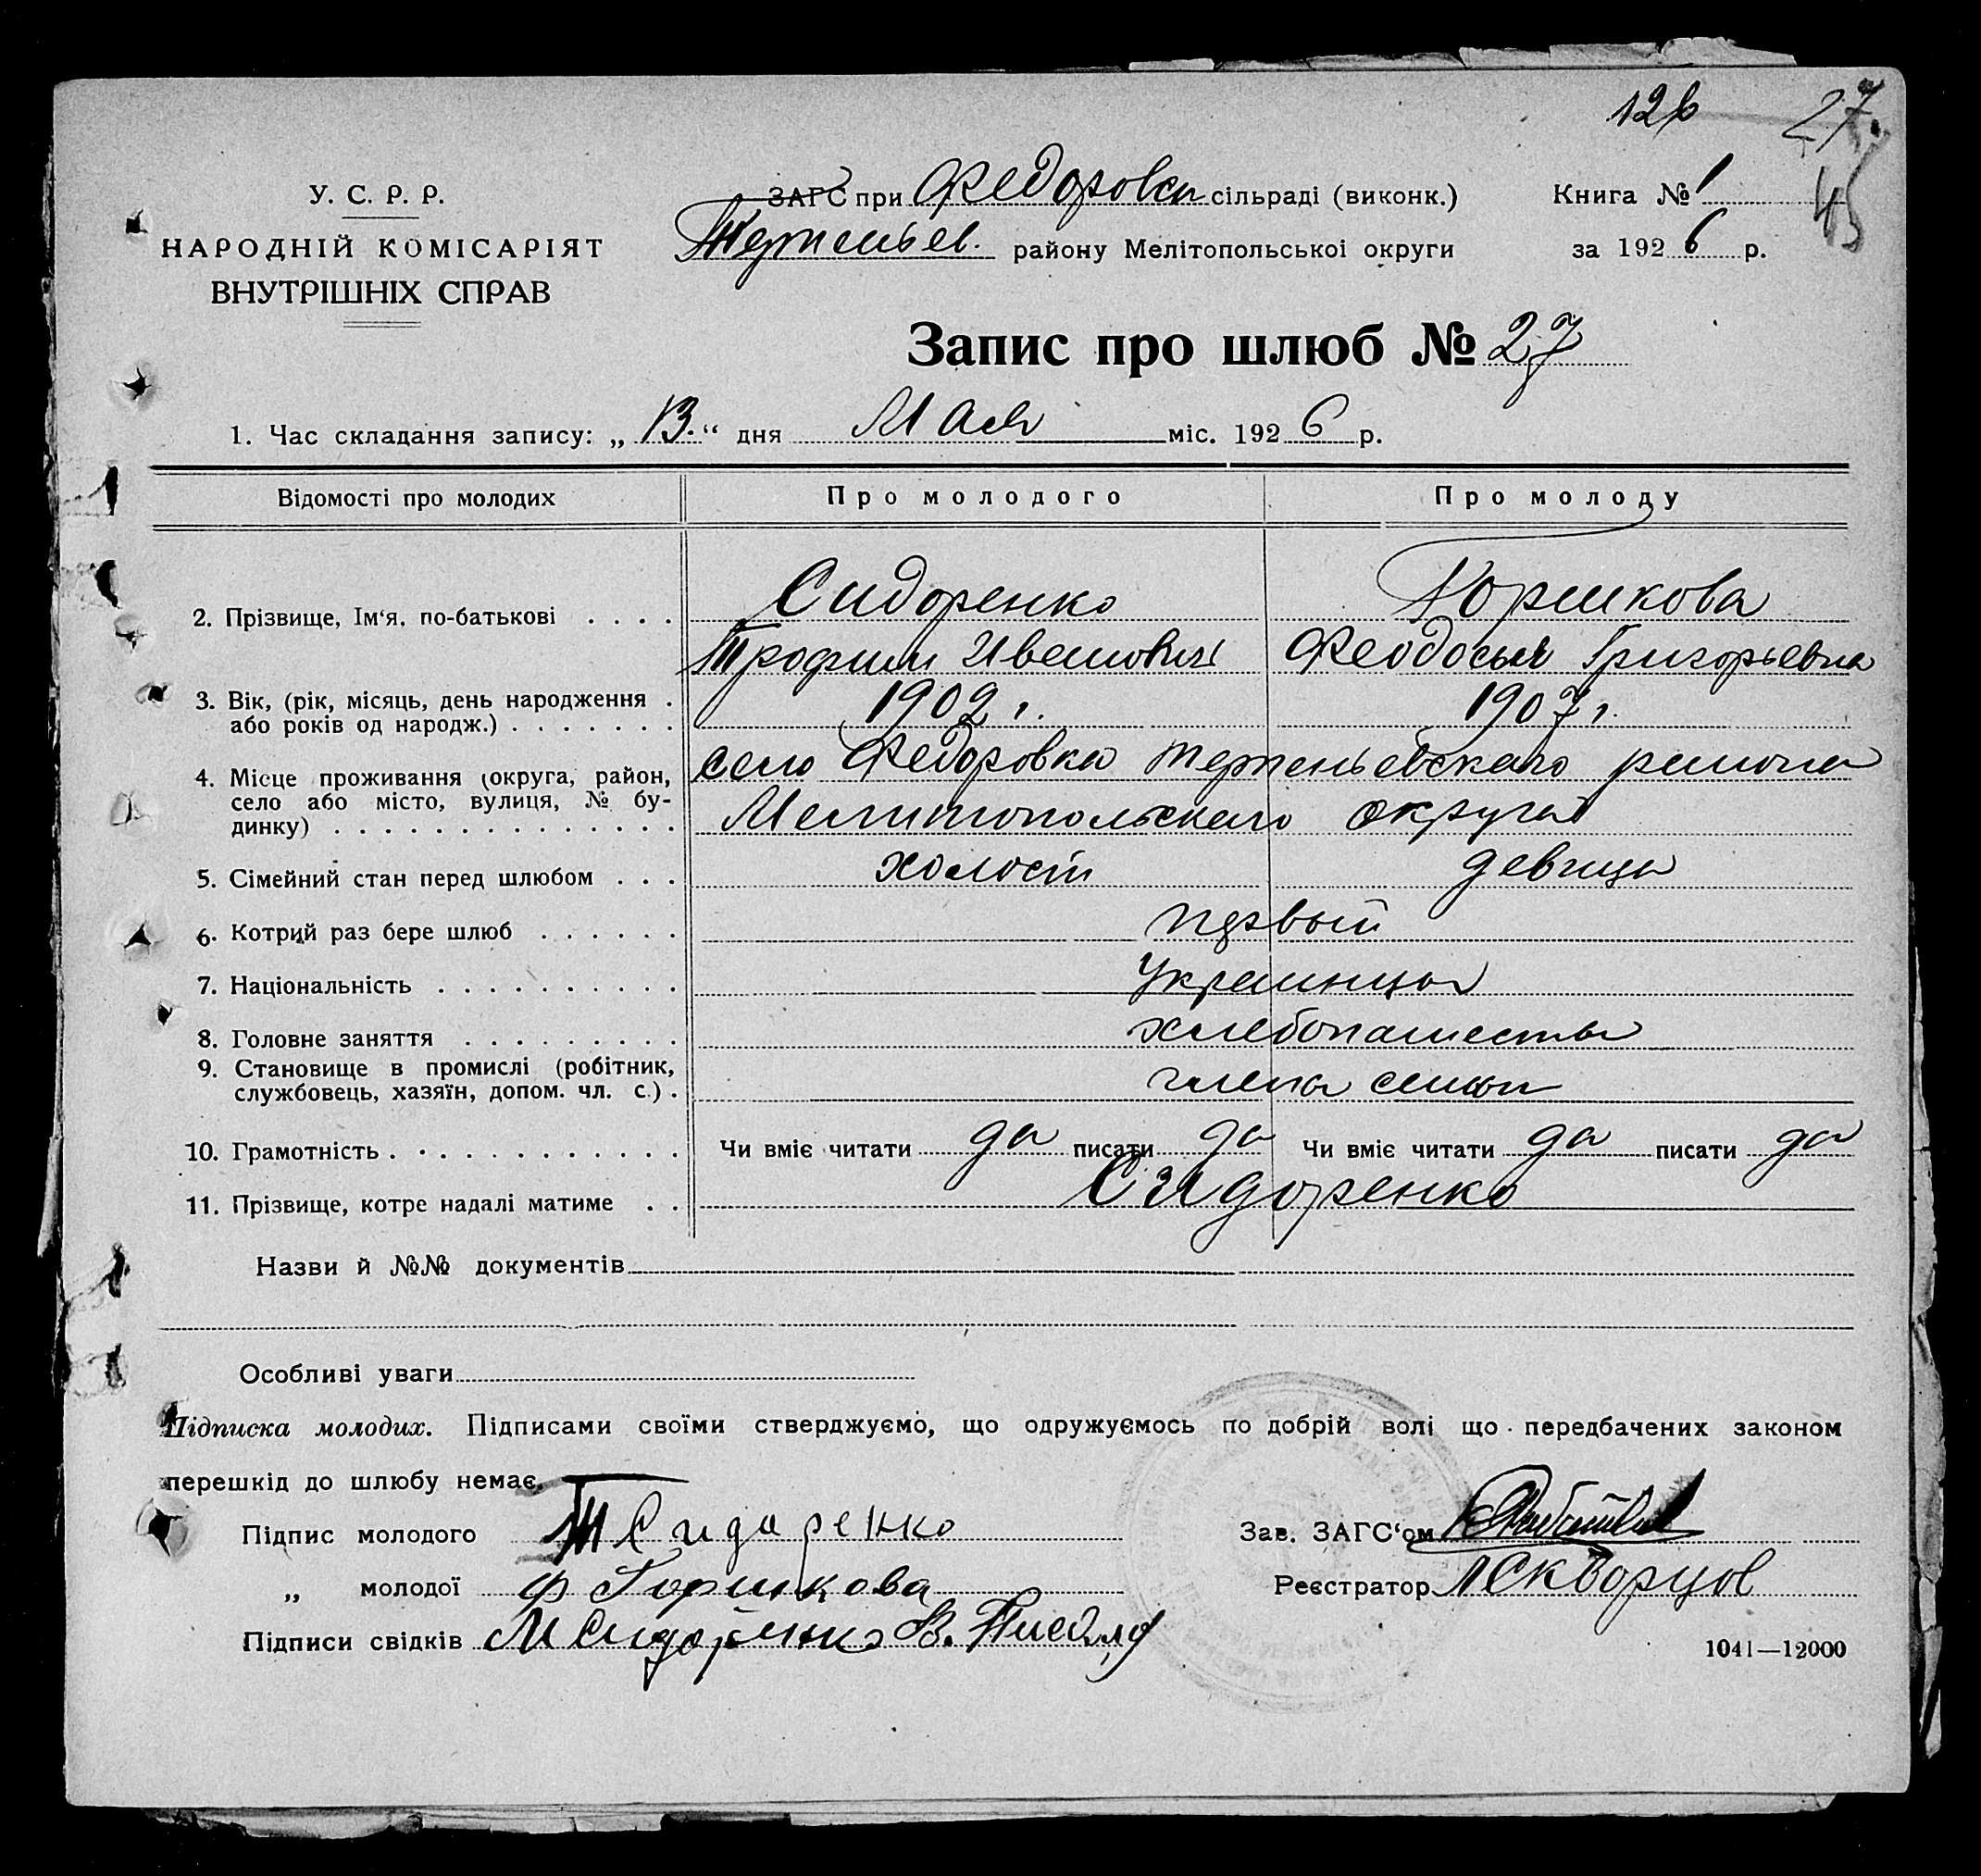 126 27.
45
У. С. Р. Р.
НАРОДНІЙ КОМІСАРІЯТ
ВНУТРІШНІХ СПРАВ
ЗАГС при Федоровск сільраді (виконк.)
Терпеньев. району Мелітопольської округи
Книга № 1
за 1926 р.
Запис про шлюб № 27
1. Час складання запису: „13.“ дня Мая міс. 1926 р.
Відомості про молодих Про молодого Про молоду
2. Прізвище, Ім‘я, по-батькові . . . . Сидоренко Горшкова
Трофим Иванович Феодосья Григорьевна
3. Вік, (рік, місяць, день народження . або років од народж.) . . . . . . . 1902 г. 1907 г.
4. Місце проживання (округа, район, село Федоровка Терпеньевского района
село або місто, вулиця, № бу- Мелитопольского округа
динку) . . . . . . . . . . . . . .
5. Сімейний стан перед шлюбом . . . холост девица
6. Котрий раз бере шлюб . . . . . . первый
7. Національність . . . . . . . . . . украинцы
8. Головне заняття . . . . . . . . . хлебопашество
9. Становище в промислі (робітник,
службовець, хазяїн, допом. чл. с.) . члена семьи
10. Грамотність . . . . . . . . . . . . Чи вміє читати да писати да Чи вміє читати да писати да
11. Прізвище, котре надалі матиме . . Сидоренко
Назви й №№ документів
Особливі уваги
Підписка молодих. Підписами своїми стверджуємо, що одружуємось по добрій волі що передбачених законом
перешкід до шлюбу немає.
Підпис молодого Т Сидаренко Зав. ЗАГС‘ом
„ молодої Ф Горшкова Реєстратор Л Скворцов
Підписи свідків М Сидоренко В.
1041—12000